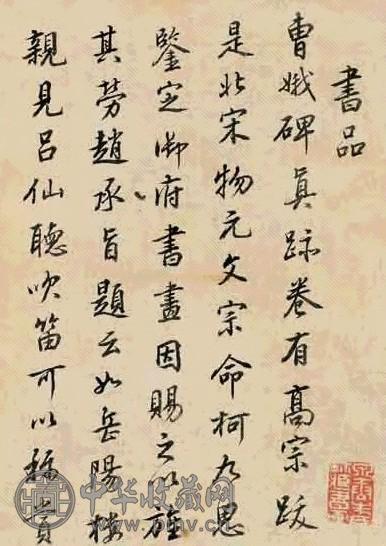 書品
曹娥碑真跡卷有高宗跋
是北宋物元文宗命柯九思
鑒定御府書畫因賜之以旌
其勞趙承旨題云如岳陽樓
親見呂仙聽吹笛可以稱賞
中华收藏网